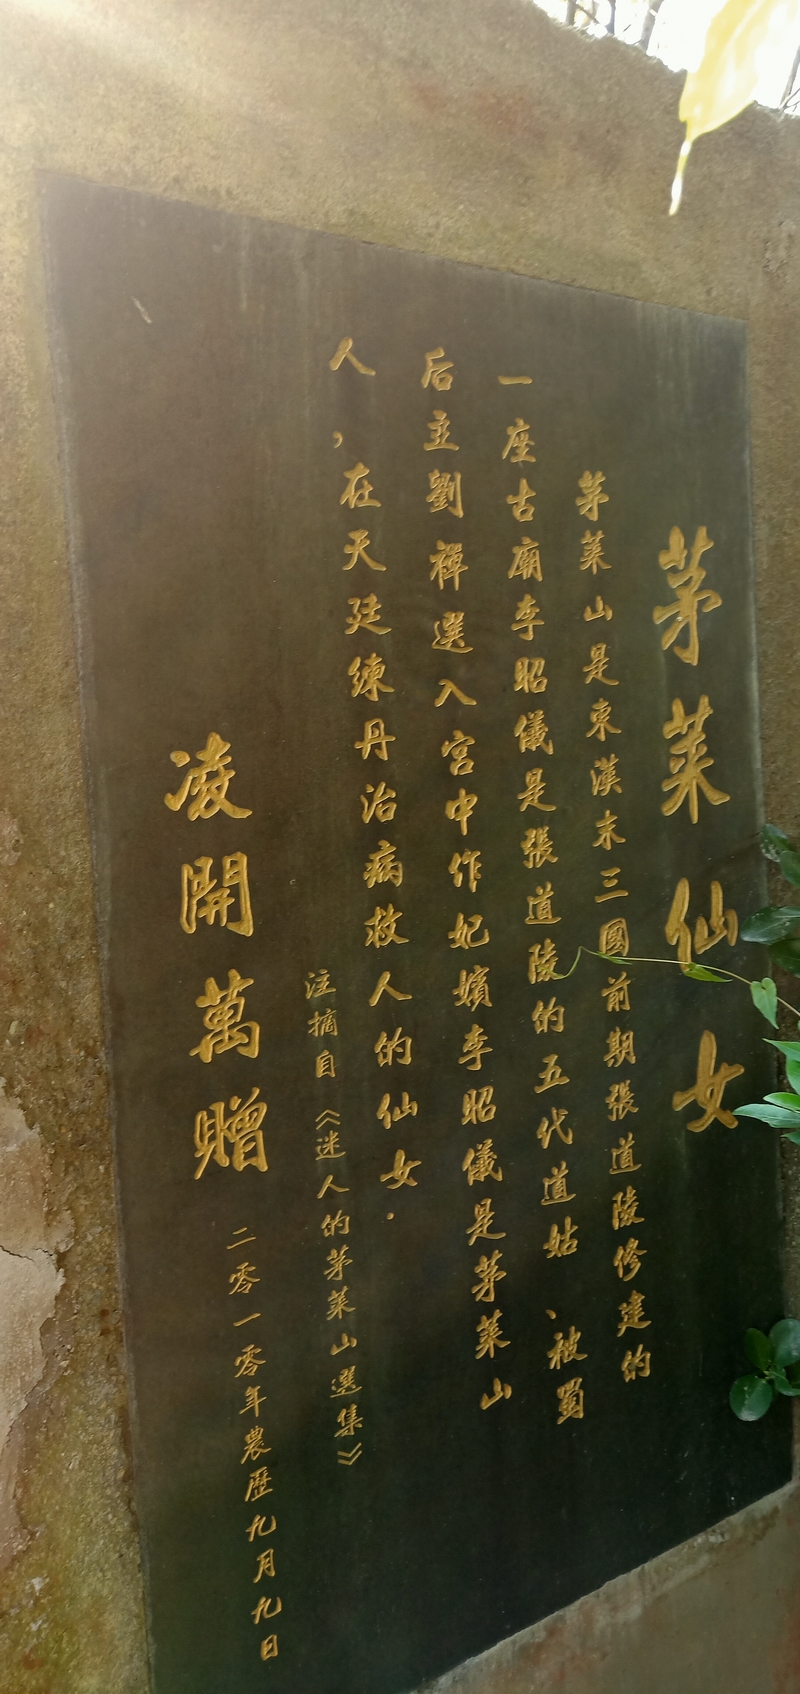 茅莱仙女
茅莱山是東漢末三國前期張道陵修建的
一座古廟李昭儀是張道陵的五代道姑、被蜀
后主劉禪選入宮中作妃嬪李昭儀是茅莱山
人，在天廷練丹治病救人的仙女.
注摘自《迷人的茅莱山選集》
凌開萬贈
二零一零年農歷九月九日